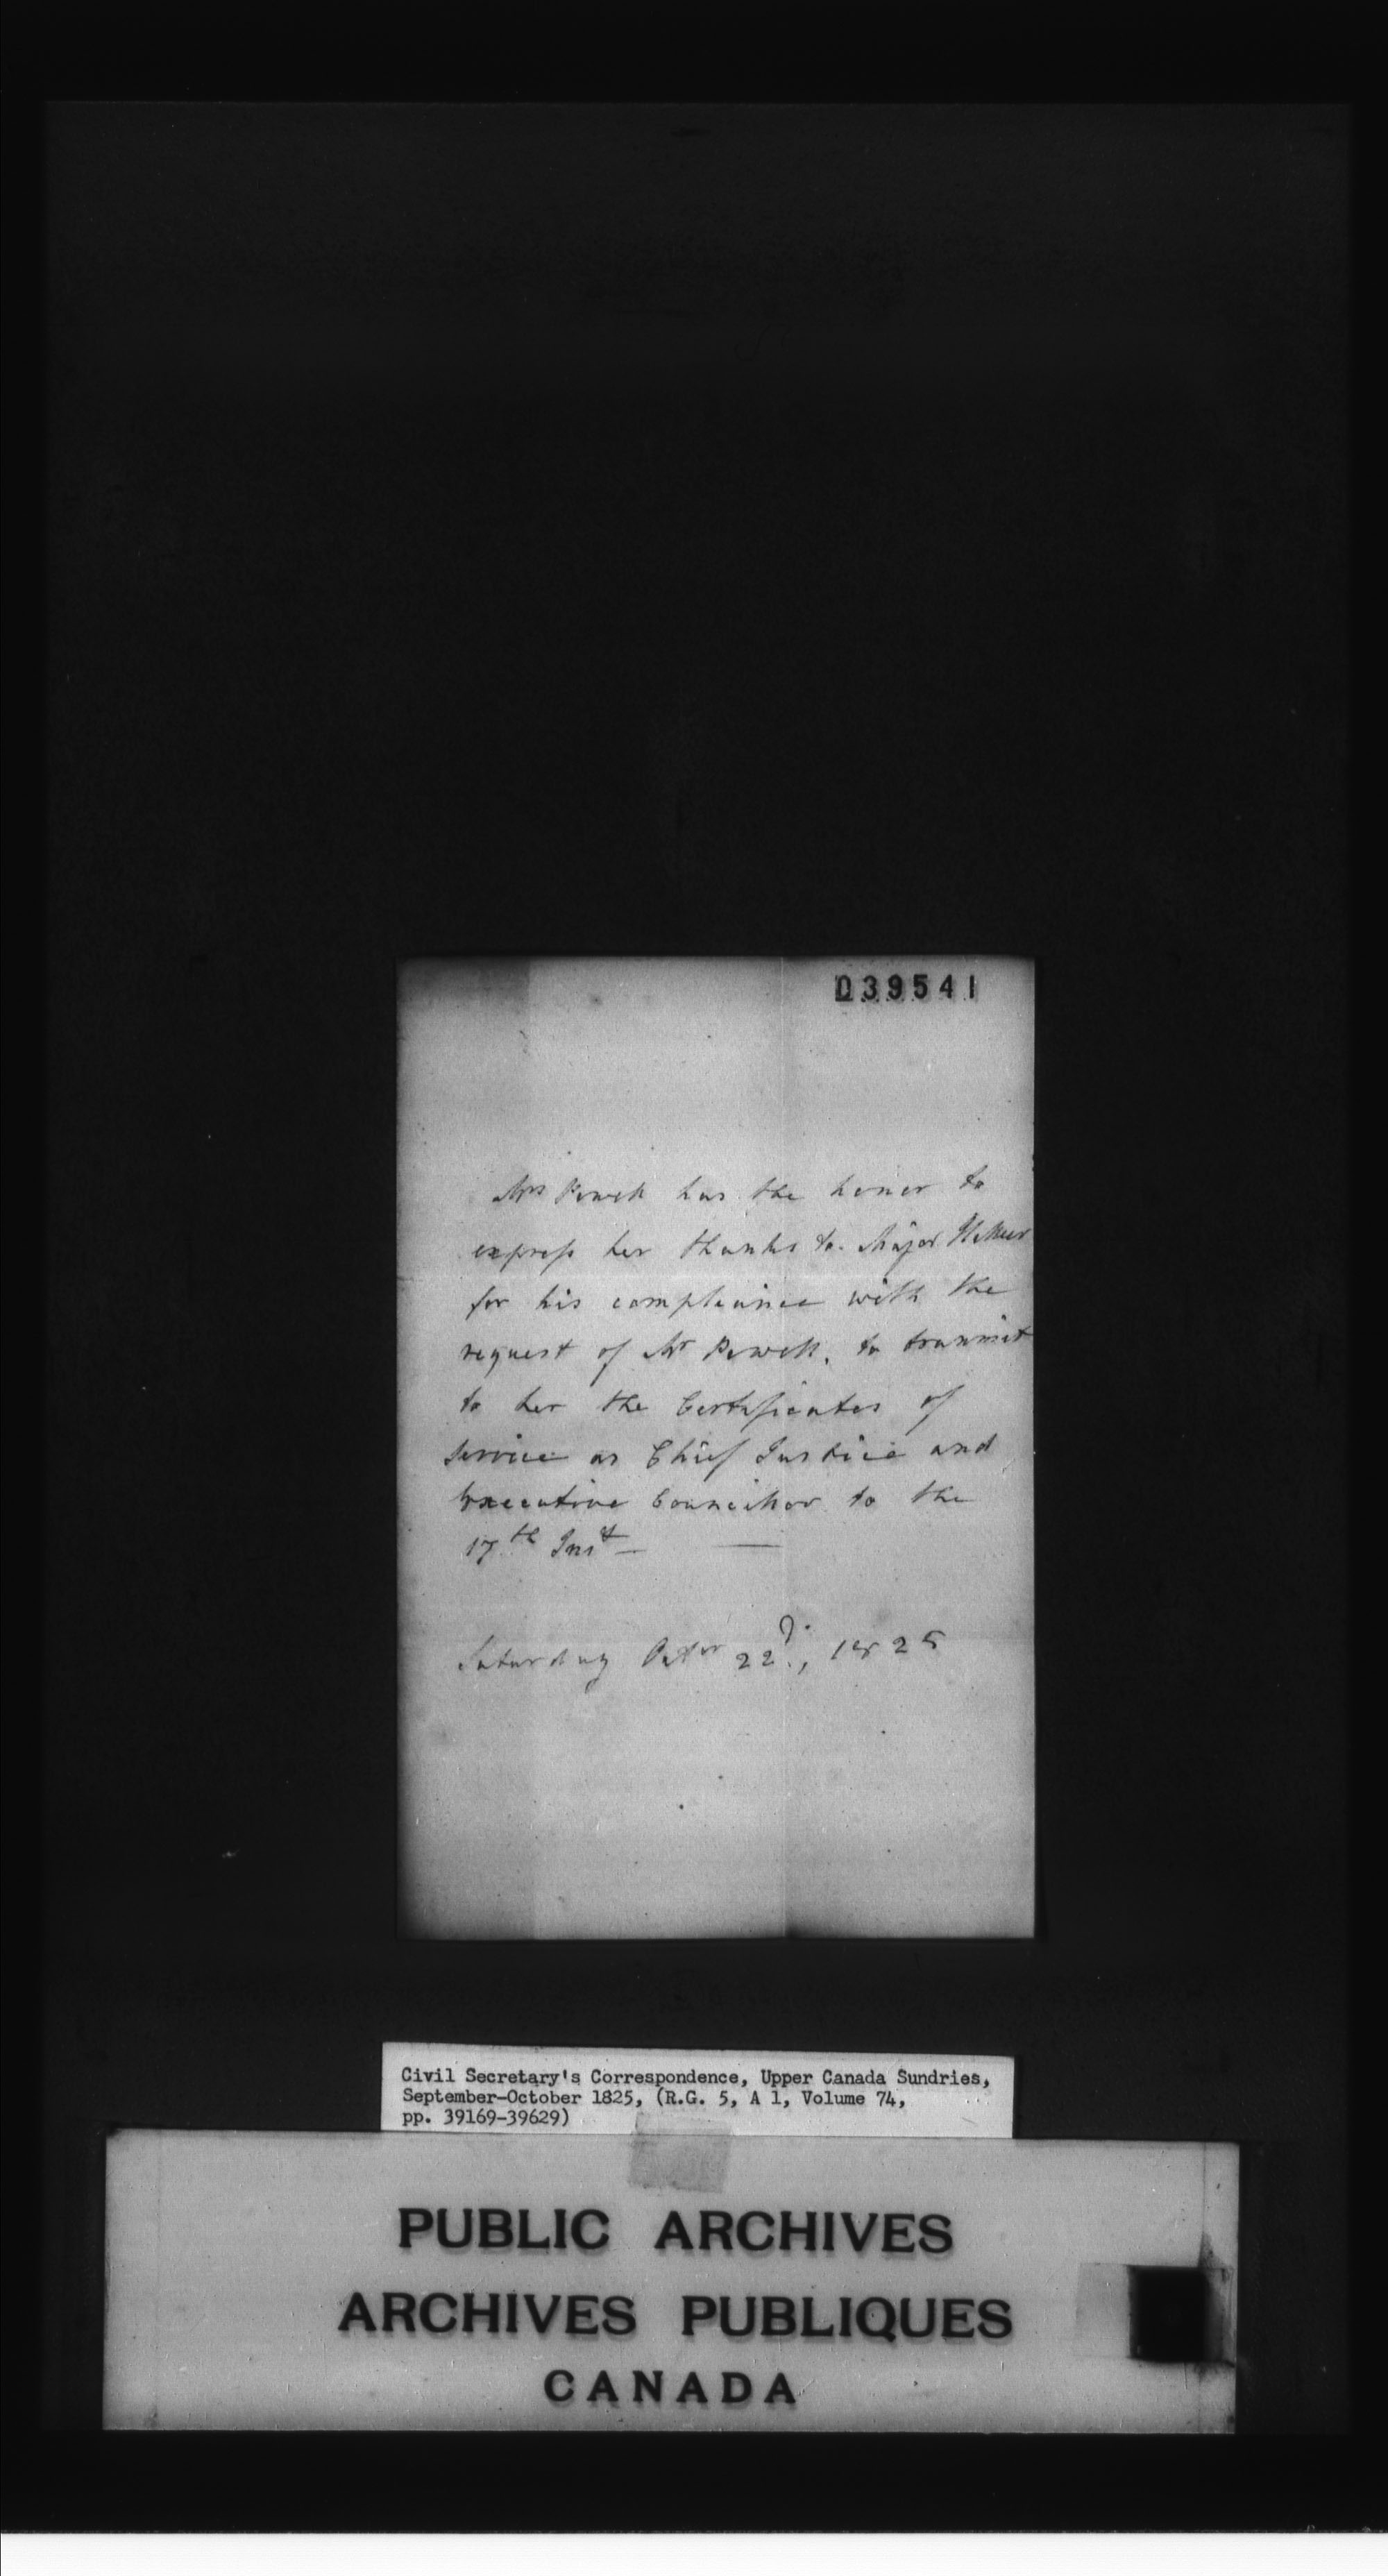 039541
Mrs Powell has the honor to
express her thanks to Major Hillier
for his compliance with the
request of Mr Powell, to transmit
to her the Certificates of
Service as Chief Justice and
Executive Councillor to the
17th Inst —
Saturday Octbr 22d., 1825
Civil Secretary's Correspondence, Upper Canada Sundries,
September-October 1825, (R.G. 5, A 1, Volume 74,
pp. 39169-39629)
PUBLIC ARCHIVES
ARCHIVES PUBLIQUES
CANADA